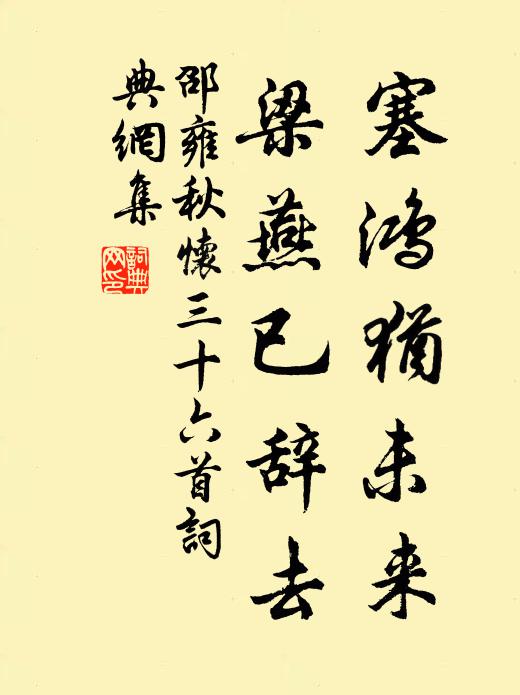 塞鸿猶未来
梁燕已辞去
邵雍秋懷三十六首詞
典網集
詞典
网印